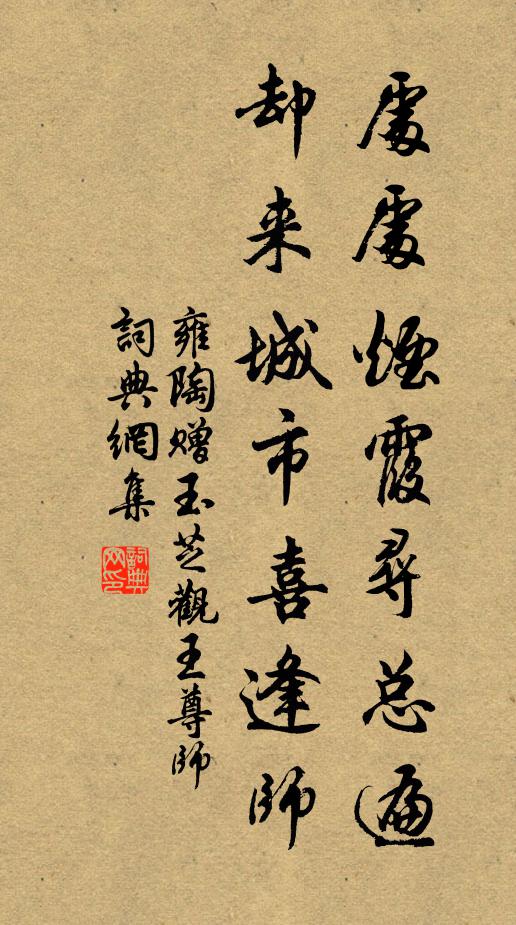 處處煙霞尋总遍
却来城市喜逢師
雍陶贈玉芝觀王尊師
詞典網集
詞典网印